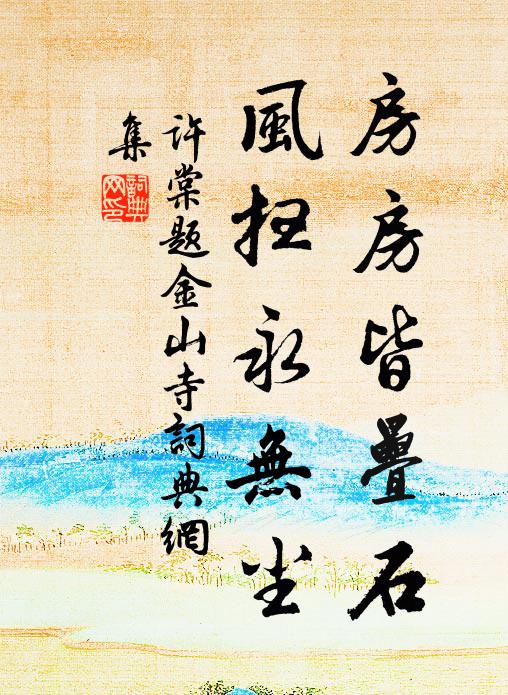 房房皆疊石
風扫永無尘
許棠題金山寺詞典網
集
詞典
网印